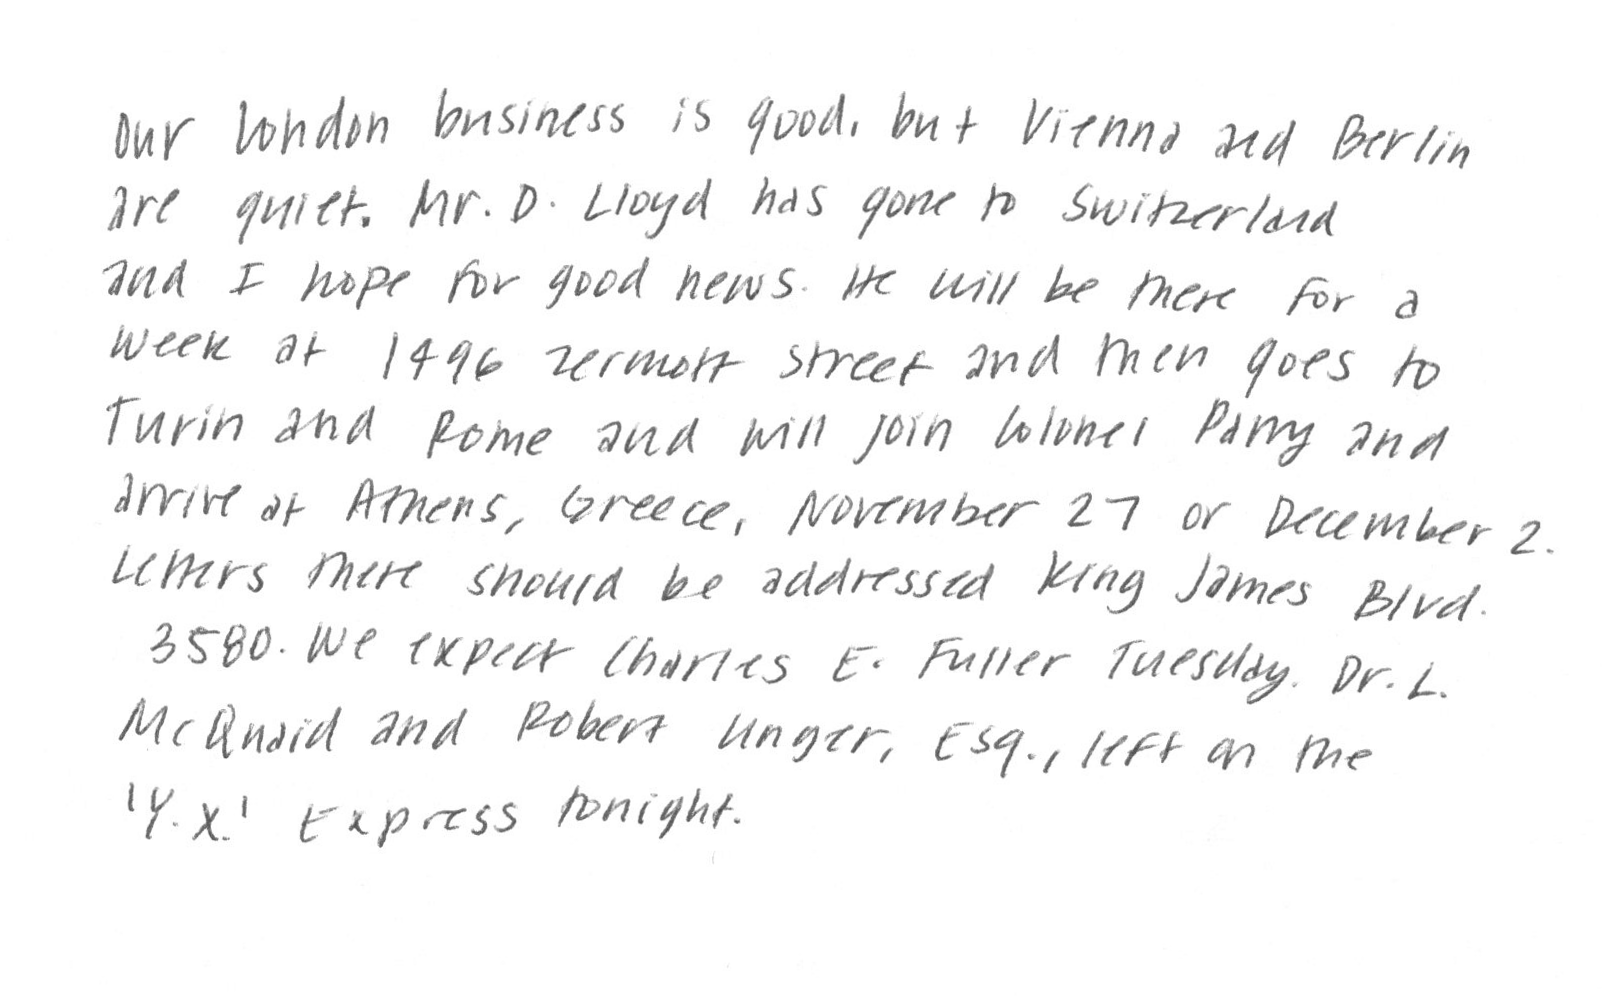 Our London business is good, but Vienna and Berlin
are quiet. Mr. D. Lloyd has gone to Switzerland
and I hope for good news. He will be there for a
week at 1496 Zermott Street and then goes to
Turin and Rome and will join Colonel Parry and
arrive at Athens, Greece, November 27 or December 2.
Letters there should be addressed King James Blvd.
3580. We expect Charles E. Fuller Tuesday. Dr. L.
McQuaid and Robert Unger, Esq., left on the
'Y.X.' Express tonight.